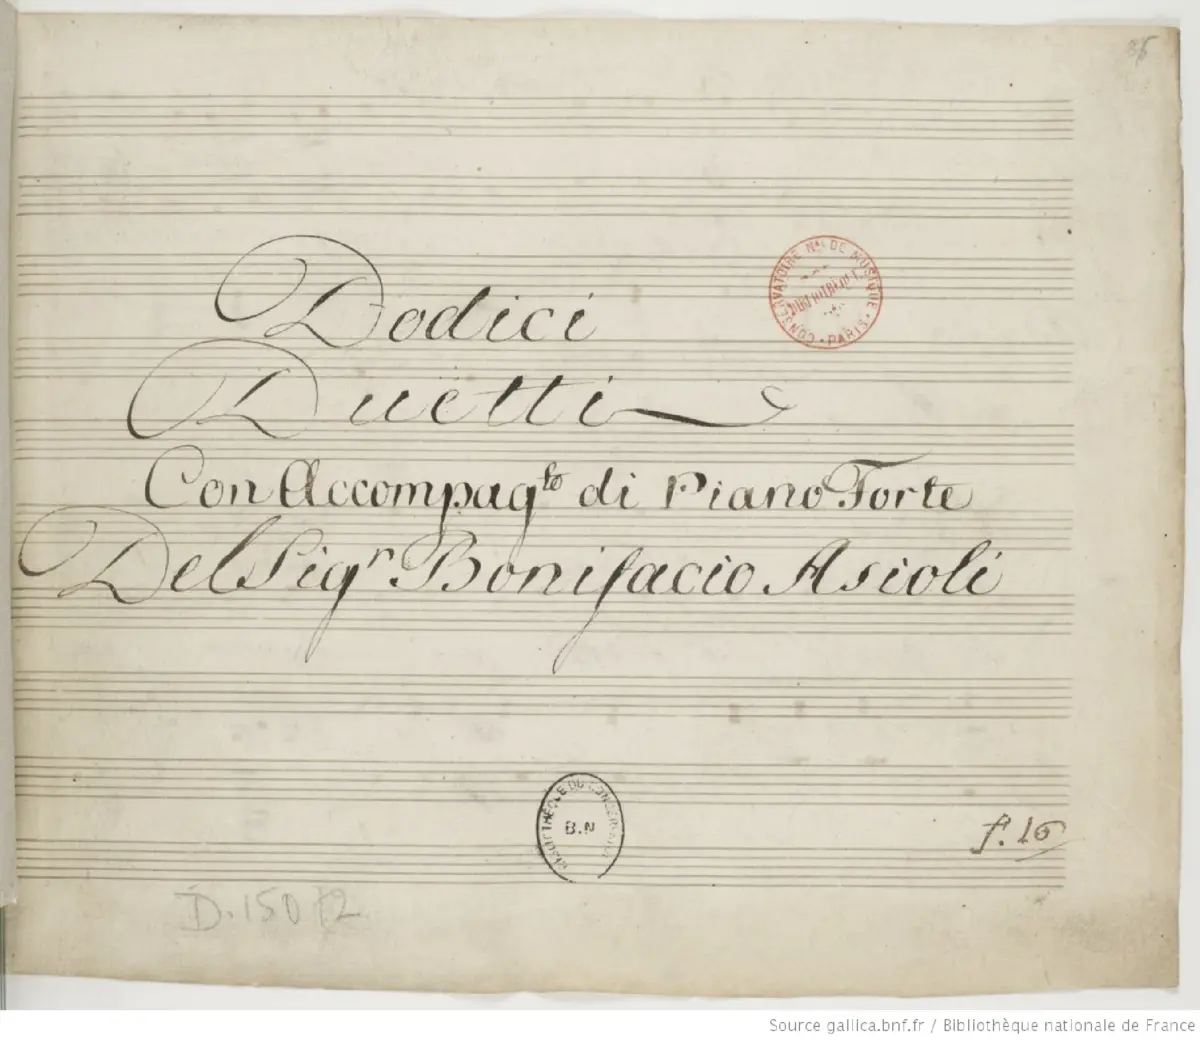 Dodici
Duetti
Con Accompagto di Piano Forte
Del Sigr Bonifacio Asioli
CONSERVATOIRE Nal DE MUSIQUE • PARIS •
BIBLIOTHÈQUE DU CONSERVATOIRE
B.N
f. 16
D. 15072
Source gallica.bnf.fr / Bibliothèque nationale de France